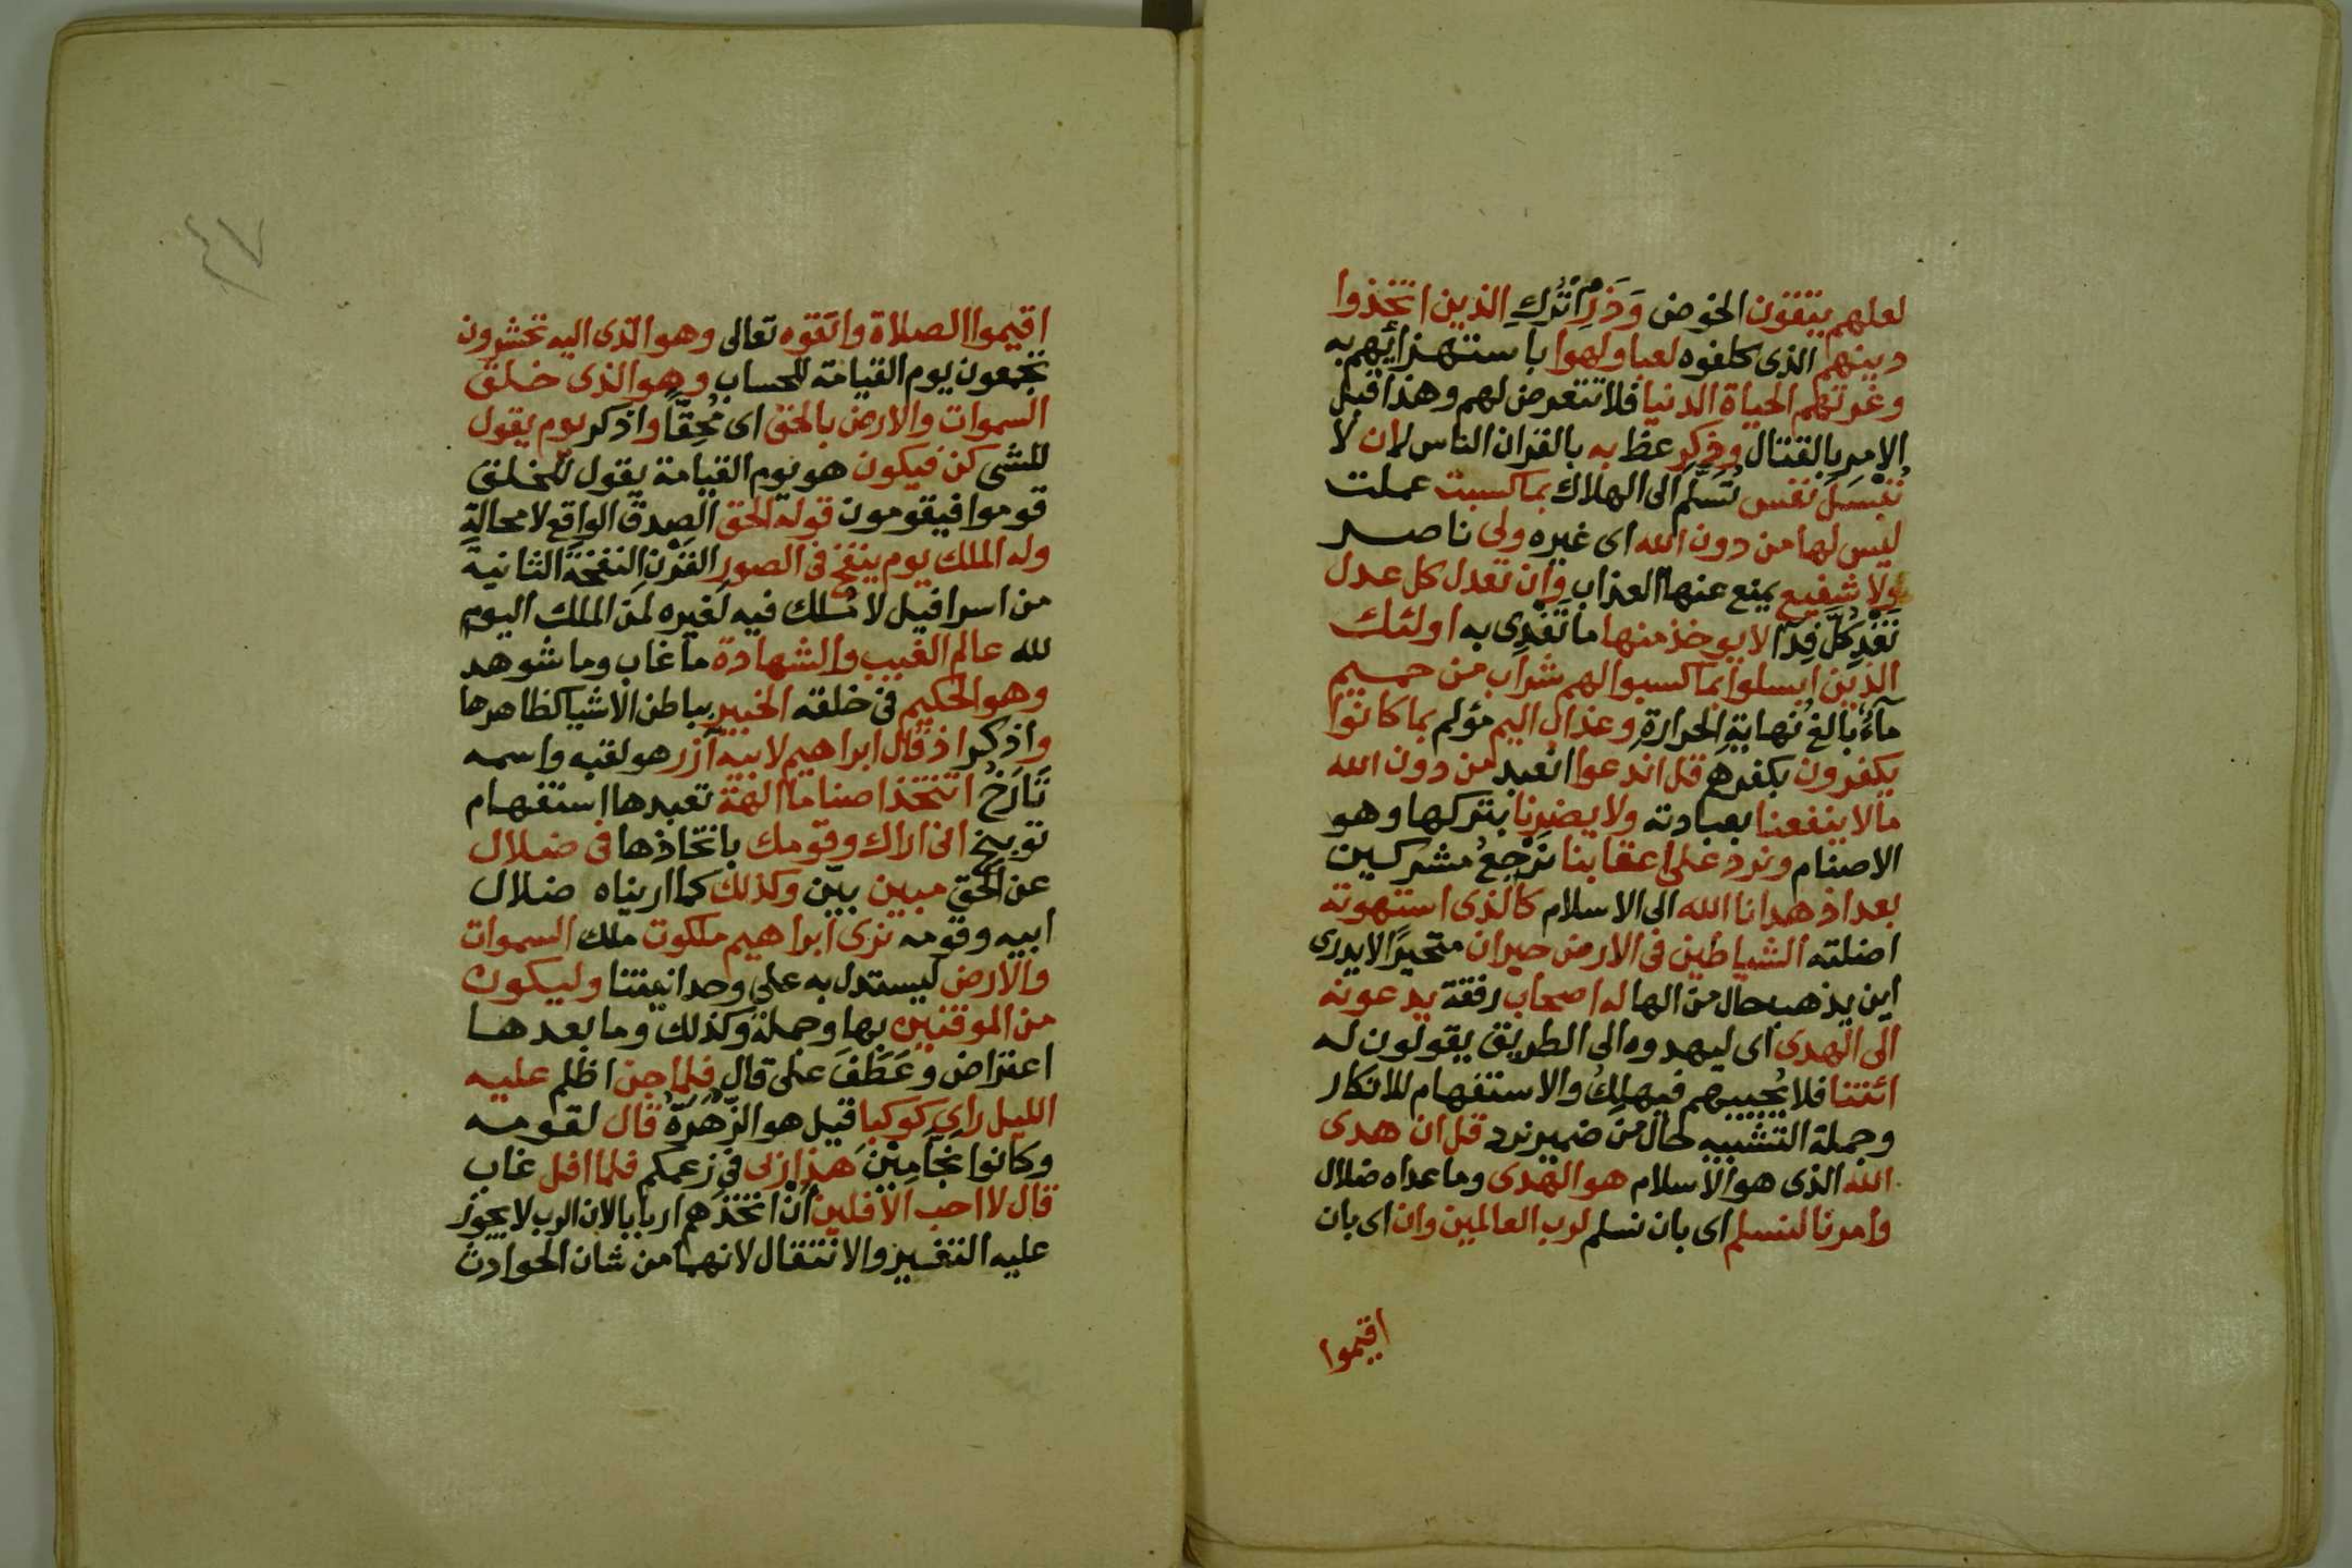 لعلهم يتقون الخوض وَذَرِ اتْرُكِ الذين اتخذوا
دينهم الذى كلفوه لعبا ولهوا باستهزائهم به
وغرتهم الحياة الدنيا فلا تتعرض لهم وهذا قبل
الامر بالقتال وذكر عظ به بالقران الناس لان لا
تبسل نفس تُسَلَّم الى الهلاك بما كسبت عملت
ليس لها من دون الله اى غيره ولى ناصر
ولا شفيع يمنع عنها العذاب وان تعدل كل عدل
تَفْدِ كُلَّ فِدَآ لا يوخذ منها ما تَفْدِى به اولئك
الذين ابسلوا بما كسبوا لهم شراب من حميم
مآءٌ بالغ نهاية الحرارة وعذاب اليم مؤلم بما كانوا
يكفرون بكفرهم قل اندعوا انعبد من دون الله
ما لا ينفعنا بعبادته ولا يضرنا بتركها وهو
الاصنام ونرد على اعقابنا نَرْجِعُ مشركين
بعد اذ هدانا الله الى الاسلام كالذى استهوته
اضلته الشياطين فى الارض حيران متحيرًا لا يدرى
اين يذهب حال من الها له اصحاب رفقة يدعونه
الى الهدى اى ليهدوه الى الطريق يقولون له
ائتنا فلا يُجيبهم فيهلِكُ والاستفهام للانكار
وجملة التشبيه حال من ضمير نرد قل ان هدى
الله الذى هو الاسلام هو الهدى وما عداه ضلال
وامرنا لنسلم اى بان نسلم لرب العالمين وان اى بان
اقيموا
٤٧
اقيموا الصلاة واتقوه تعالى وهو الذى اليه تحشرون
تجمعون يوم القيامة للحساب وهو الذى خلق
السموات والارض بالحق اى مُحِقًّا واذكر يوم يقول
للشى كن فيكون هو يوم القيامة يقول للخلق
قوموا فيقومون قوله الحق الصدق الواقع لا محالة
وله الملك يوم ينفخ فى الصور القَرْنِ النفخة الثانية
من اسرافيل لا مُلك فيه لغيره لمن الملك اليوم
لله عالم الغيب والشهادة ما غاب وما شوهد
وهو الحكيم فى خلقه الخبير بباطن الاشيا كظاهرها
واذكر اذ قال ابراهيم لابيه آزر هو لقبه واسمه
تَارَخُ اتتخذ اصناما الهة تعبدها استفهام
توبيخ انى اراك وقومك باتخاذها فى ضلال
عن الحق مبين بيّن وكذلك كما اريناه ضلال
ابيه وقومه نرى ابراهيم ملكوت ملك السموات
والارض ليستدل به على وحدانيتنا وليكون
من الموقنين بها وجملة وكذلك وما بعدها
اعتراض وعَطَفَ على قال فلما جن اظلم عليه
الليل راى كوكبا قيل هو الزُّهَرَةُ قال لقومه
وكانوا نجامِيْنَ هذا ربى فى زعمكم فلما افل غاب
قال لا احب الآفلين أنْ اتخذهم اربابا لان الرب لا يجوز
عليه التغيير والانتقال لانهما من شان الحوادث